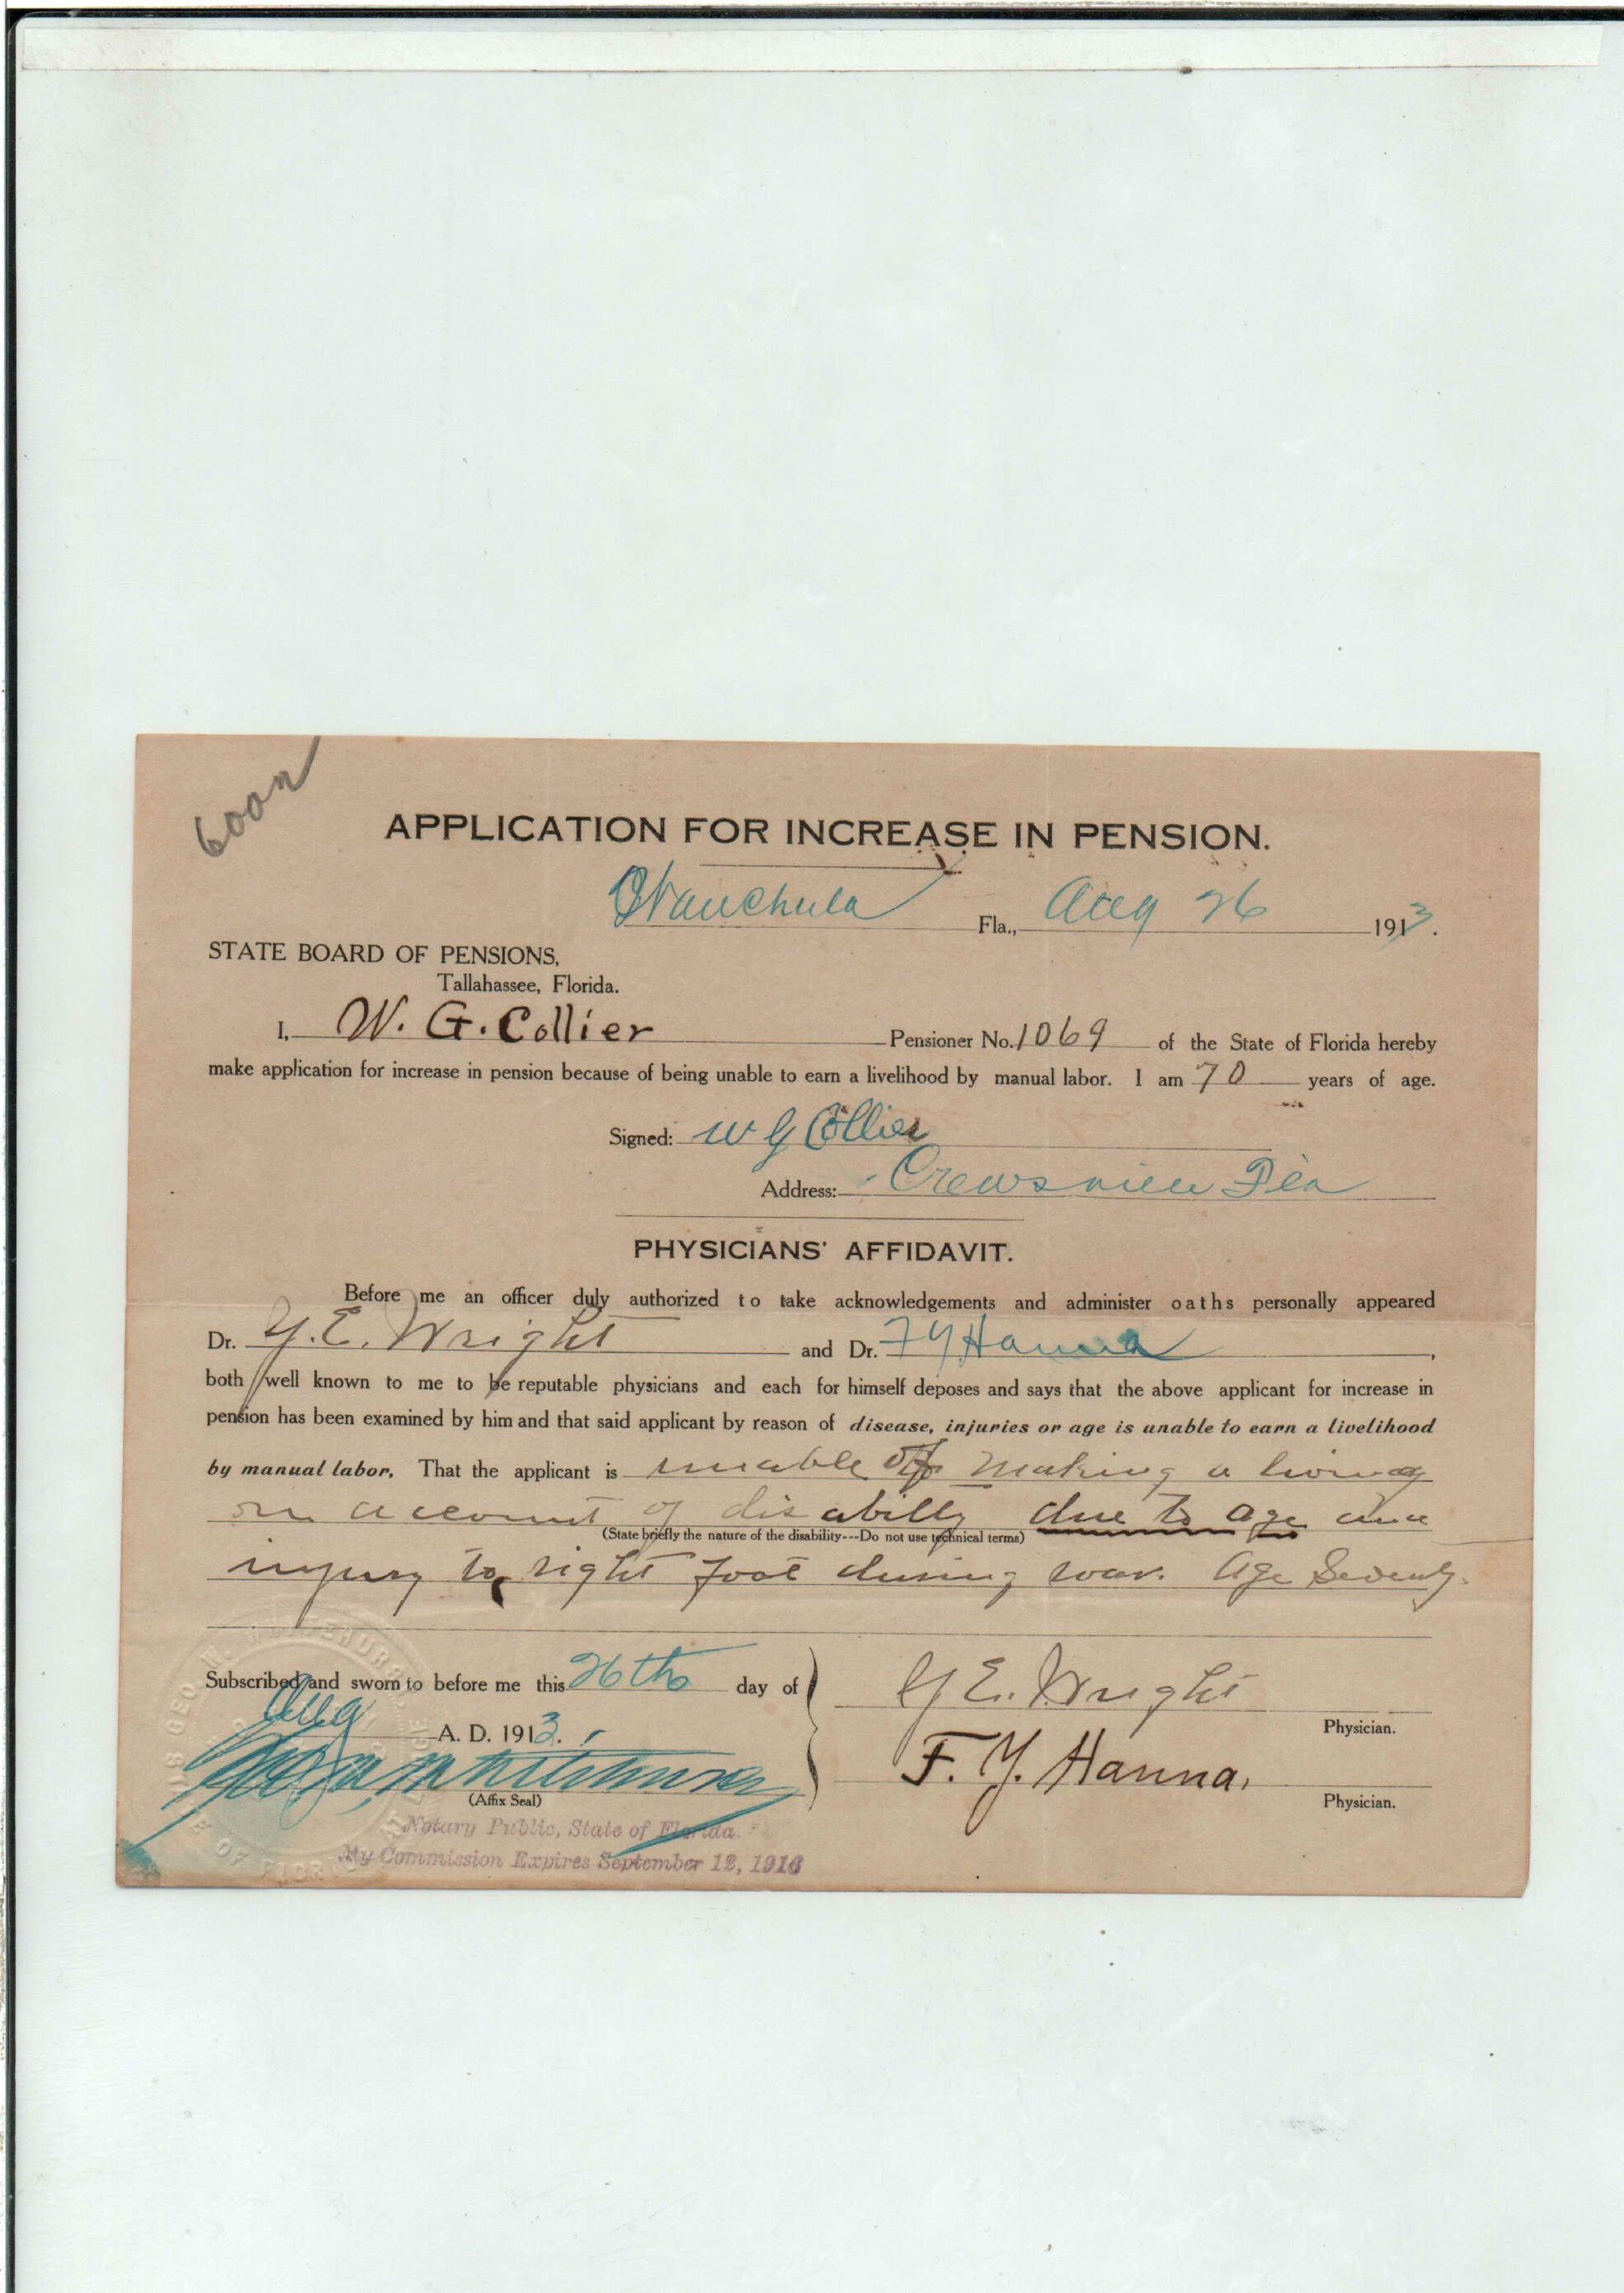 APPLICATION FOR INCREASE IN PENSION.
Wauchula Fla., Aug 26 1913.
STATE BOARD OF PENSIONS,
Tallahassee, Florida.
I, W. G. Collier Pensioner No. 1069 of the State of Florida hereby
make application for increase in pension because of being unable to earn a livelihood by manual labor. I am 70 years of age.
Signed: W G Collier
Address: Crewsville Fla
PHYSICIANS' AFFIDAVIT.
Before me an officer duly authorized to take acknowledgements and administer oaths personally appeared
Dr. Y. E. Wright and Dr. F Y Hanna,
both well known to me to be reputable physicians and each for himself deposes and says that the above applicant for increase in
pension has been examined by him and that said applicant by reason of disease, injuries or age is unable to earn a livelihood
by manual labor. That the applicant is unable of making a living
on account of disabilty due to age and
(State briefly the nature of the disability---Do not use technical terms)
injury to right foot during war. Age Seventy.
Subscribed and sworn to before me this 26th day of
Aug A. D. 1913.
Y E. Wright
Physician.
F. Y. Hanna.
Physician.
(Affix Seal)
Notary Public, State of Florida.
My Commission Expires September 12, 1916